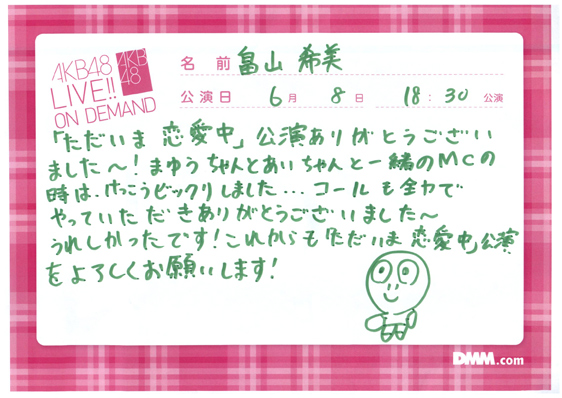 AKB48
LIVE!!
ON DEMAND
AKB
48
名 前 畠山 希美
公演日 6月 8日 18:30 公演
「ただいま 恋愛中」公演ありがとうござい
ました〜!まゆうちゃんとあいちゃんと一緒のMCの
時は、けっこうビックリしました...コールも全力で
やっていただきありがとうございました〜
うれしかったです!これからも「ただいま 恋愛中」公演
をよろしくお願いします!
DMM.com